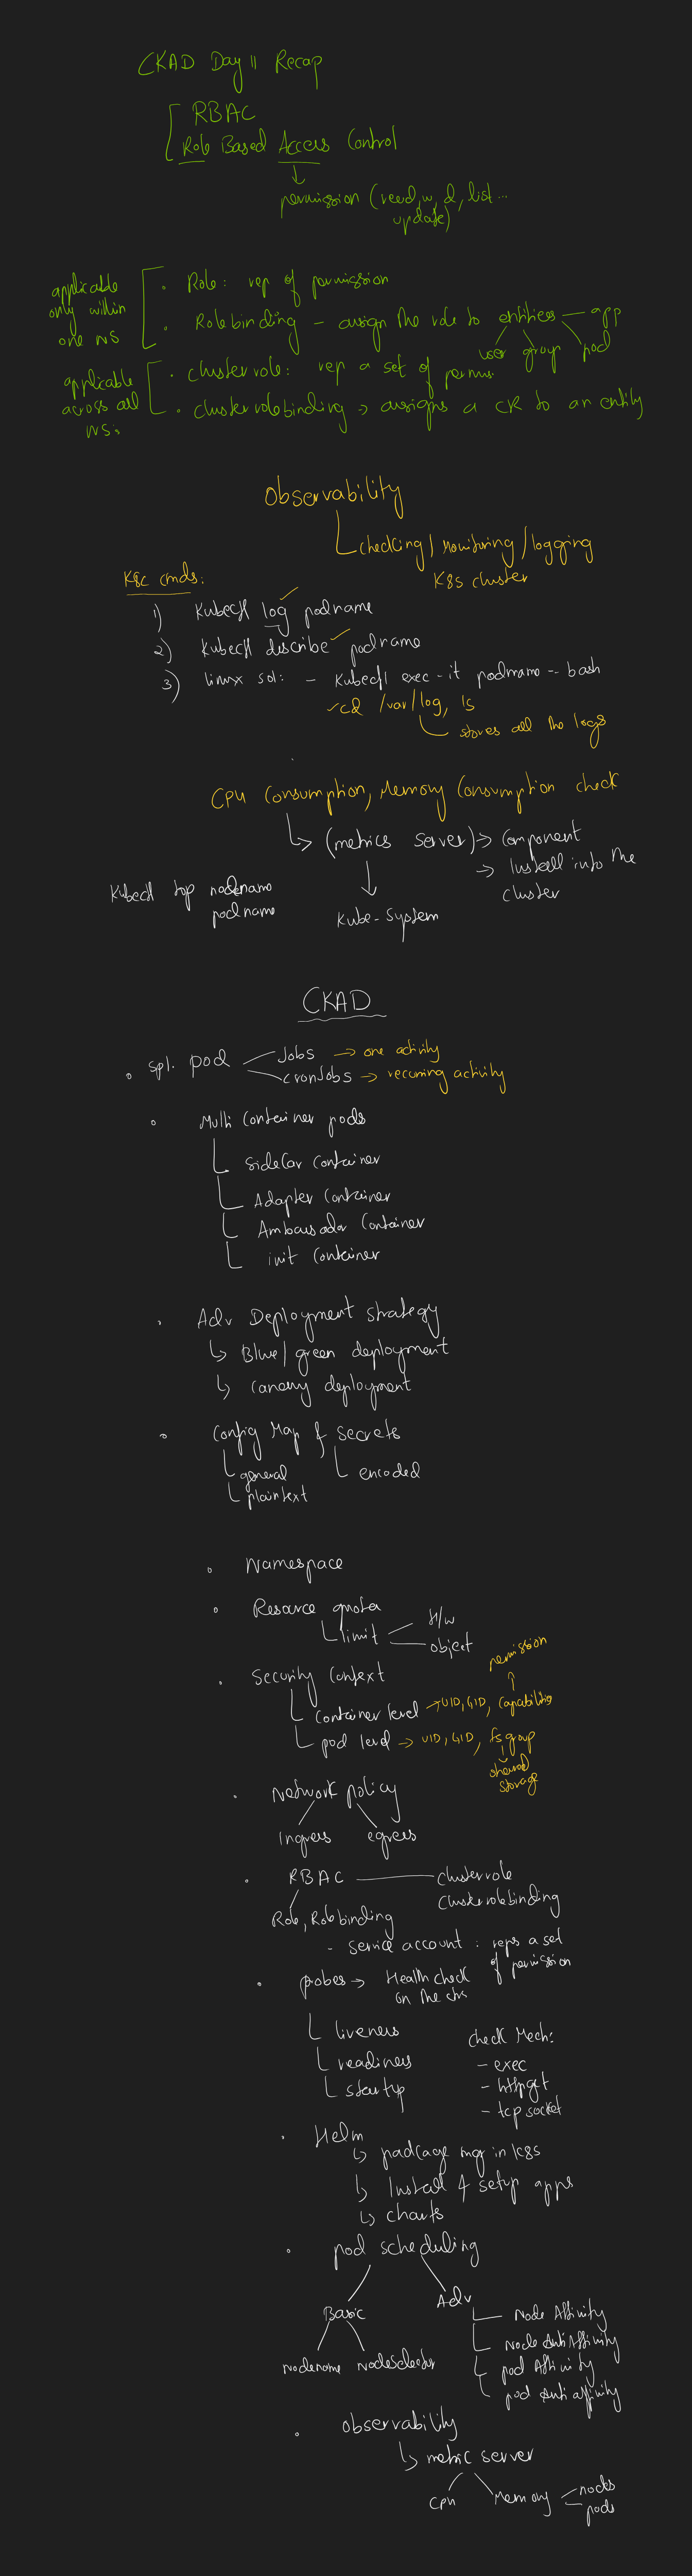 CKAD Day 11 Recap
RBAC
Role Based Access Control
permission (read, w, d, list...
update)
applicable
only within
one NS
. Role: rep of permission
. Rolebinding - assign the role to entities - app
user group pod
applicable
across all
NS:
. clusterrole: rep a set of permis.
. clusterrolebinding → assigns a CR to an entity
Observability
checking / Monitoring / logging
K8s cluster
K8c cmds:
1) Kubectl log podname
2) Kubectl describe podname
3) linux sol: - Kubectl exec -it podname -- bash
cd /var/log, ls
stores all the logs
CPU Consumption, Memory Consumption check
(metrics server) → component
→ Install into the
cluster
Kubectl top nodename
podname
Kube-System
CKAD
spl. pod
Jobs → one activity
cronJobs → recurring activity
Multi Container pods
SideCar container
Adapter Container
Ambassador Container
init Container
Adv Deployment strategy
↳ Blue/green deployment
↳ canary deployment
Config Map & secrets
general
plaintext
encoded
Namespace
Resource quota
limit
H/w
object
Security Context
permission
container level → UID, GID, capabilities
pod level → UID, GID, fsgroup
shared
storage
Network policy
Ingress egress
RBAC
clusterrole
Clusterrolebinding
Role, Rolebinding
- service account : reps a set
of permission
probes → Health check
on the ctrs
liveness
readiness
startup
check Mech:
- exec
- httpget
- tcp socket
Helm
↳ package mgr in K8s
↳ Install & setup apps
↳ charts
pod scheduling
Basic
Adv
Nodename NodeSelector
Node Affinity
Node AntiAffinity
pod Affinity
pod Anti affinity
observability
↳ metric server
CPU
Memory
nodes
pods